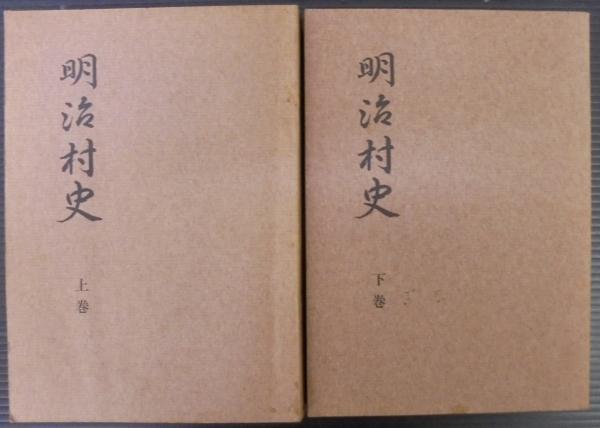 明治村史
上巻
明治村史
下巻